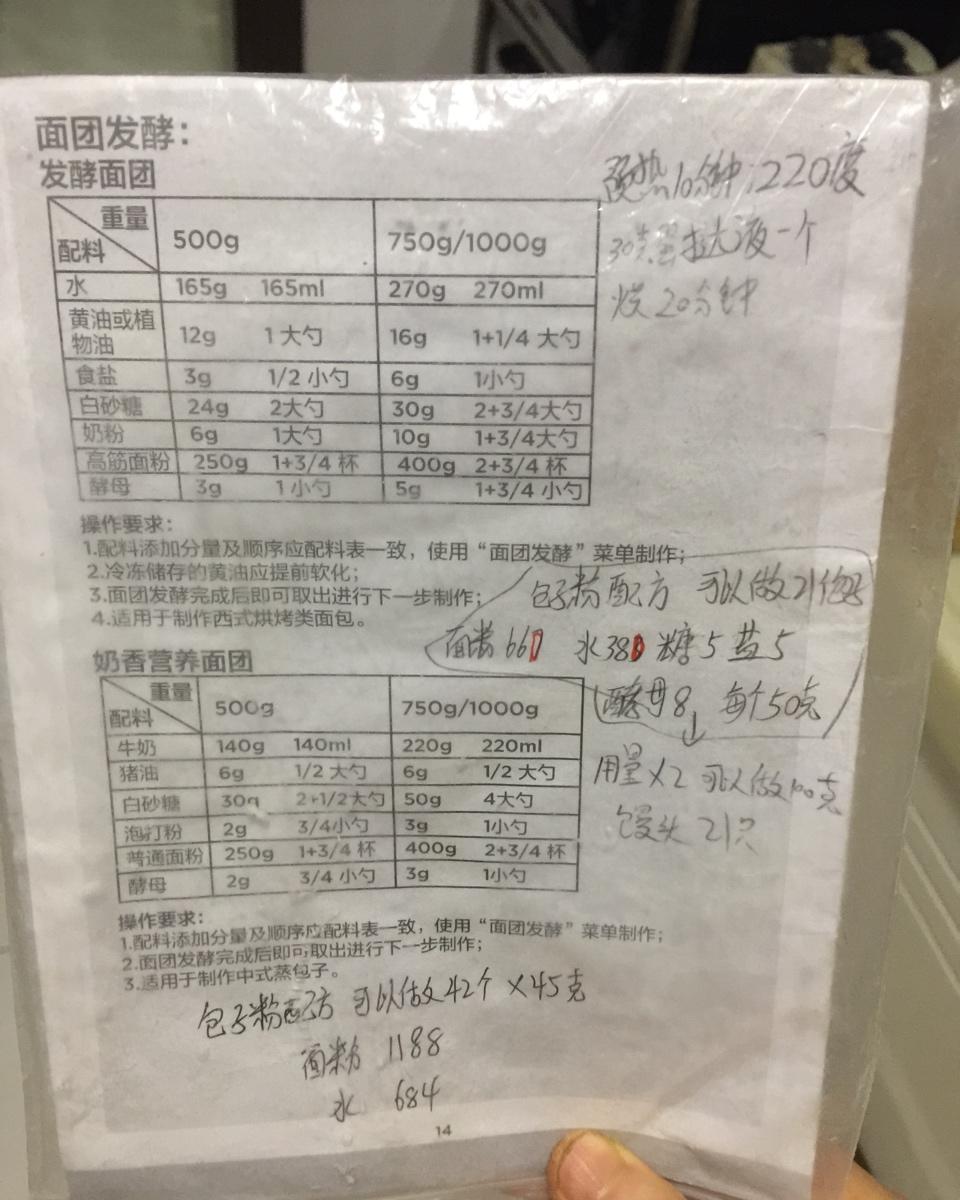 面团发酵：
发酵面团
预热10分钟：220度
30克蛋挞液一个
烘20分钟
重量 500g 750g/1000g
配料
水 165g 165ml 270g 270ml
黄油或植物油 12g 1大勺 16g 1+1/4 大勺
食盐 3g 1/2 小勺 6g 1小勺
白砂糖 24g 2大勺 30g 2+3/4大勺
奶粉 6g 1大勺 10g 1+3/4大勺
高筋面粉 250g 1+3/4 杯 400g 2+3/4 杯
酵母 3g 1 小勺 5g 1+3/4 小勺
操作要求：
1.配料添加分量及顺序应配料表一致，使用“面团发酵”菜单制作；
2.冷冻储存的黄油应提前软化；
3.面团发酵完成后即可取出进行下一步制作；
4.适用于制作西式烘烤类面包。
包子粉配方 可以做21个
面粉660 水380 糖5 盐5
酵母8 每个50克
用量×2 可以做100克
馒头 21只
奶香营养面团
重量 500g 750g/1000g
配料
牛奶 140g 140ml 220g 220ml
猪油 6g 1/2 大勺 6g 1/2 大勺
白砂糖 30g 2+1/2大勺 50g 4大勺
泡打粉 2g 3/4小勺 3g 1小勺
普通面粉 250g 1+3/4 杯 400g 2+3/4 杯
酵母 2g 3/4 小勺 3g 1小勺
操作要求：
1.配料添加分量及顺序应配料表一致，使用“面团发酵”菜单制作；
2.面团发酵完成后即可取出进行下一步制作；
3.适用于制作中式蒸包子。
包子粉配方 可以做42个 ×45克
面粉 1188
水 684
14